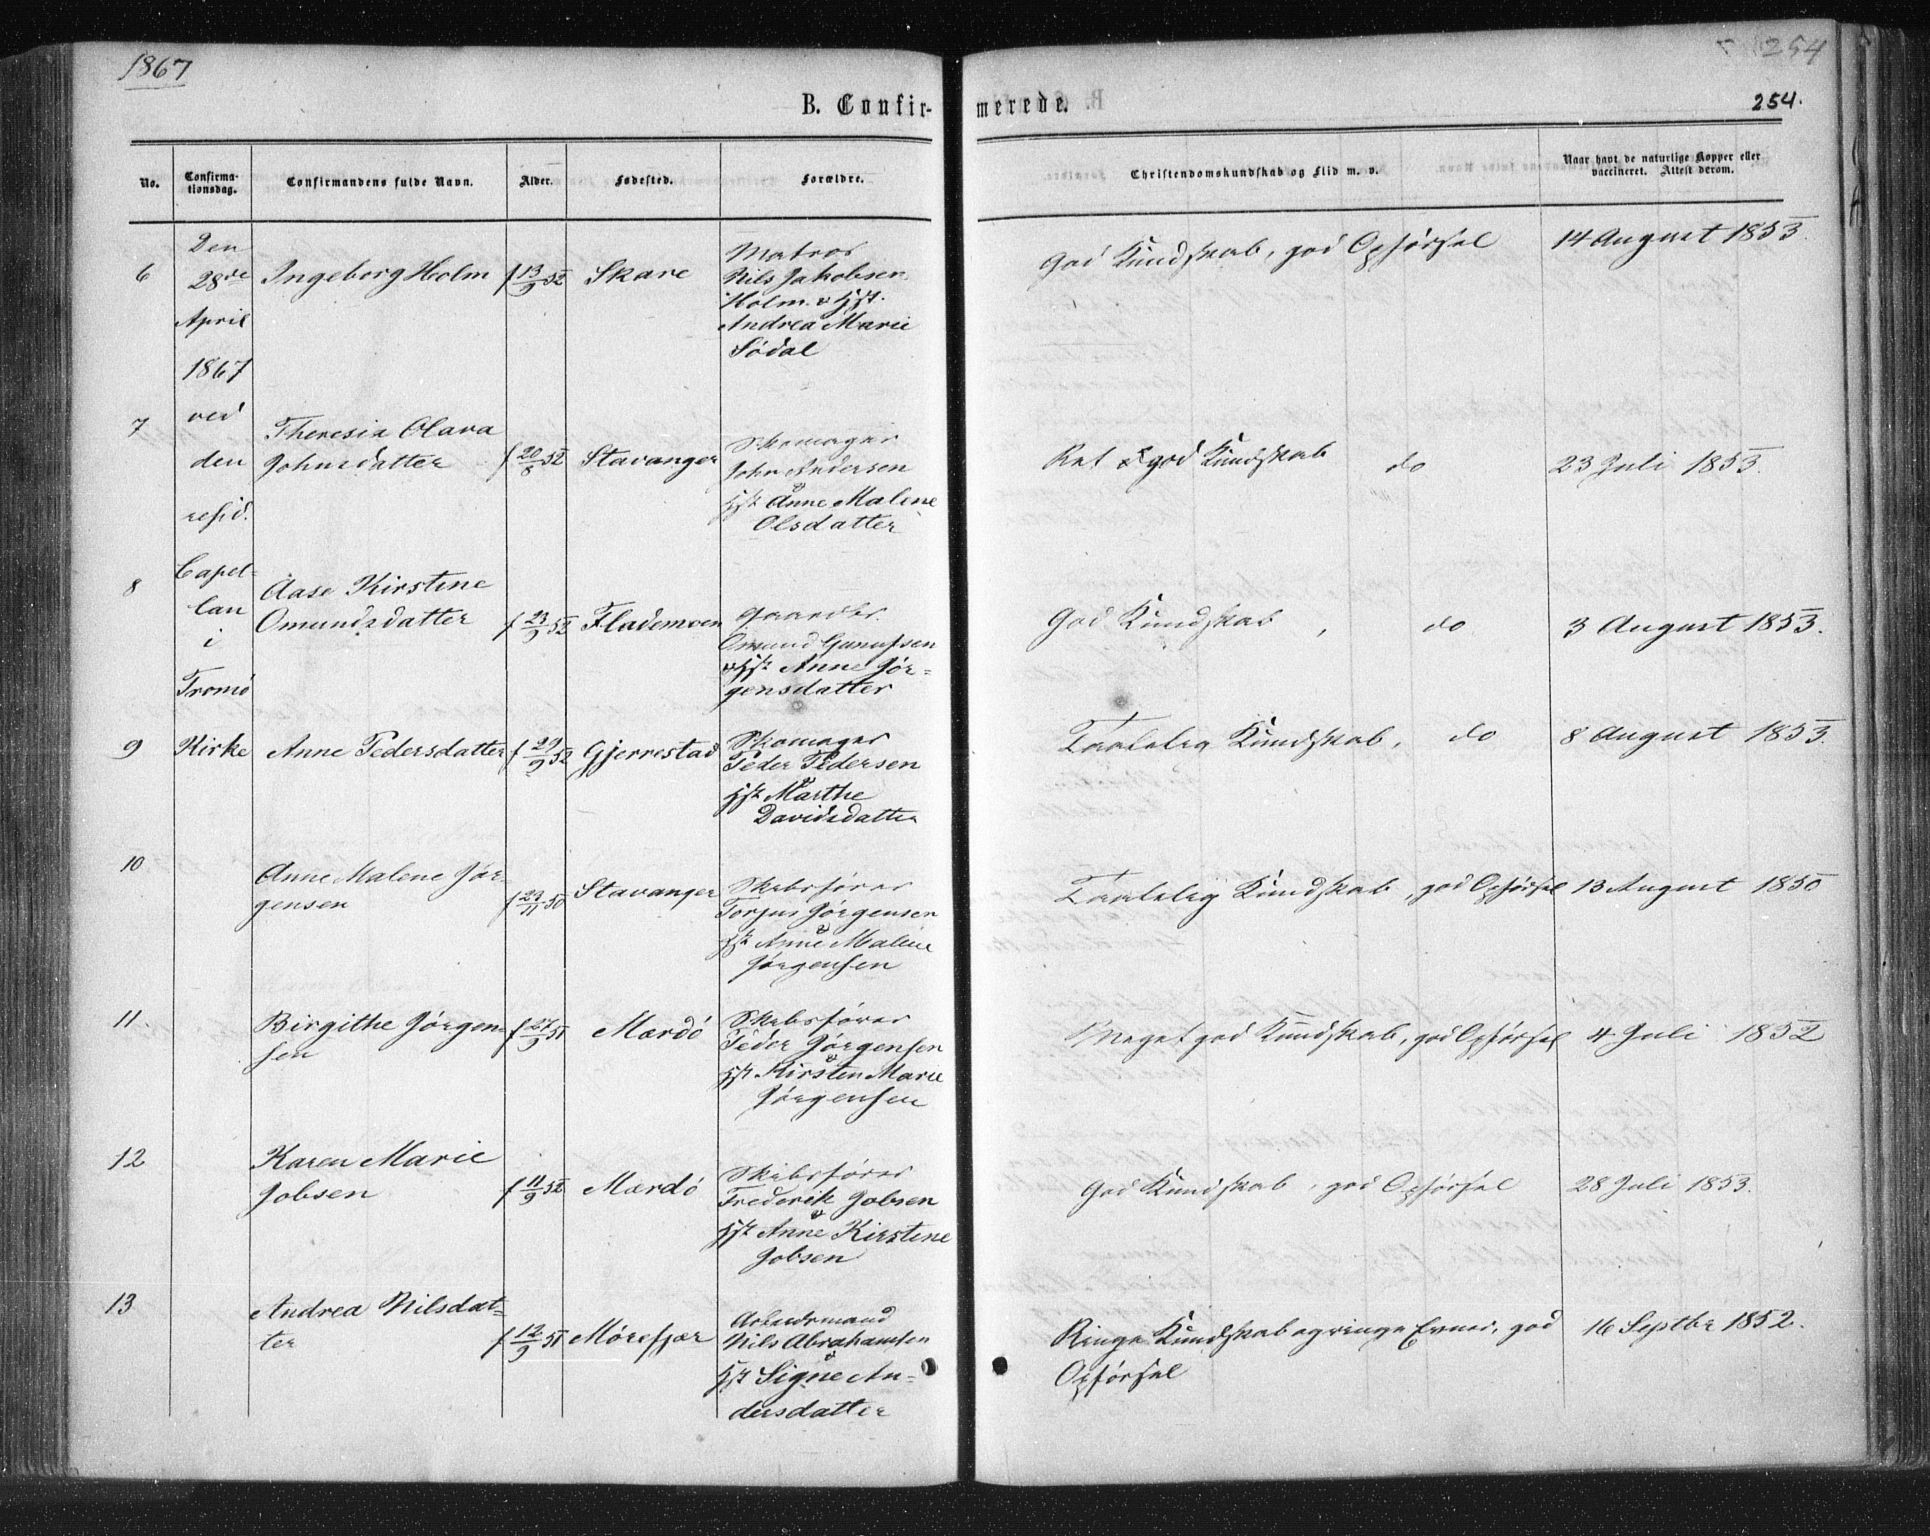 1867
254
B. Confirmerede.
254.
No.
Confirmationsdag.
Confirmandens fulde Navn.
Alder.
Fødested.
Forældre.
Christendomskundskab og Flid m. v.
Naar havt de naturlige Kopper eller
vaccineret. Attest derom.
Den
28de
April
1867
ved
den
resid.
Capel-
lan
i
Tromø
Kirke
6
Ingeborg Holm
f 13/9 52
Skare
Matros
Nils Jakobsen
Holm. & Hst.
Andrea Marie
Södal
God Kundskab, god Opførsel
14 August 1853.
7
Theresia Olava
Johnsdatter
f 20/8 52
Stavanger
Skomager
John Andersen
& Hst Anne Malene
Olsdatter
Ret god Kundskab do
23 Juli 1853.
8
Aase Kirstine
Omundsdatter
f 23/9 52
Flademoen
Gaardbr.
Omund Gunufsen
& Hst Anne Jör-
gensdatter
God Kundskab, do
3 August 1853.
9
Anne Pedersdatter
f 29/9 52
Gjerrestad
Skomager
Peder Pedersen
& Hst Marthe
Davidsdatter
Taalelig Kundskab, do
8 August 1853.
10
Anne Malene Jör-
gensen
f 23/11 50
Stavanger
Skibsfører
Torjus Jörgensen
& Hst Anne Malene
Jörgensen
Taalelig Kundskab, god Opførsel
13 August 1850
11.
Birgithe Jörgen-
sen
f 27/9 51
Mærdö
Skibsfører
Peder Jörgensen
& Hst Kirsten Marie
Jörgensen
Meget god Kundskab, god Opførsel
4 Juli 1852
12
Karen Marie
Jobsen
f 11/9 52
Mærdö
Skibsfører
Frederik Jobsen
& Hst Anne Kirstine
Jobsen
God Kundskab, god Opførsel
28 Juli 1853.
13
Andrea Nilsdat-
ter
f 12/9 51
Mörefjær
Arbeidsmand
Nils Abrahamsen
& Hst Signe An-
dersdatter
Ringe Kundskab og ringe Evner, god
Opførsel
16 Septbr 1852.